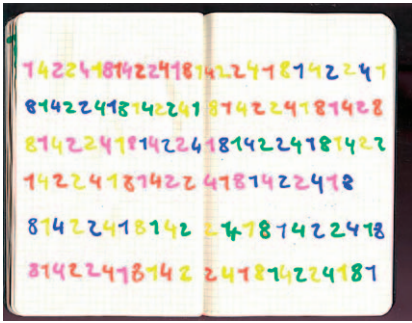 142241814224181422418142241
81422418142241814224181428
81422418142241814224181422
142241814224181422418
8142241814224181422418
81422418142241814224181